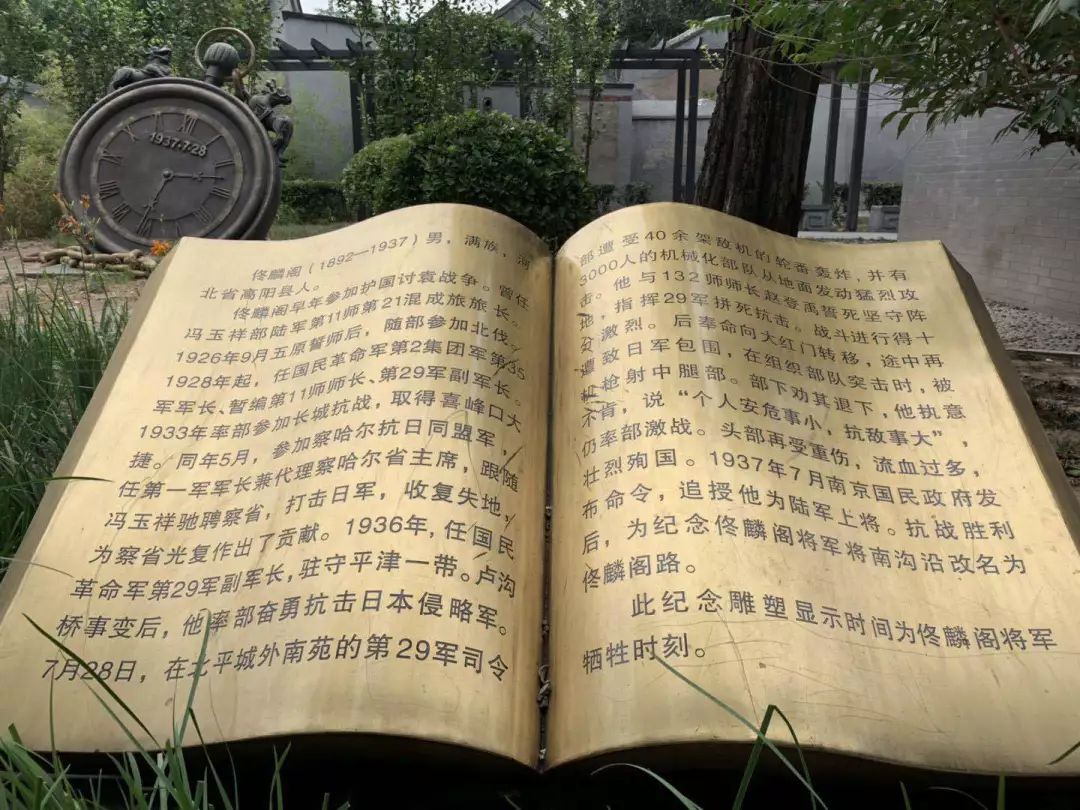 1937·7·28
佟麟阁（1892—1937）男，满族，河
北省高阳县人。
佟麟阁早年参加护国讨袁战争。曾任
冯玉祥部陆军第11师第21混成旅旅长。
1926年9月五原誓师后，随部参加北伐。
1928年起，任国民革命军第2集团军第35
军军长、暂编第11师师长、第29军副军长。
1933年率部参加长城抗战，取得喜峰口大
捷。同年5月，参加察哈尔抗日同盟军，
任第一军军长兼代理察哈尔省主席，跟随
冯玉祥驰聘察省，打击日军，收复失地，
为察省光复作出了贡献。1936年，任国民
革命军第29军副军长，驻守平津一带。卢沟
桥事变后，他率部奋勇抗击日本侵略军。
7月28日，在北平城外南苑的第29军司令
部遭受40余架敌机的轮番轰炸，并有
3000人的机械化部队从地面发动猛烈攻
击。他与132师师长赵登禹誓死坚守阵
地，指挥29军拼死抗击。战斗进行得十
分激烈。后奉命向大红门转移，途中再
遭致日军包围，在组织部队突击时，被
机枪射中腿部。部下劝其退下，他执意
不肯，说“个人安危事小，抗敌事大”，
仍率部激战。头部再受重伤，流血过多，
壮烈殉国。1937年7月南京国民政府发
布命令，追授他为陆军上将。抗战胜利
后，为纪念佟麟阁将军将南沟沿改名为
佟麟阁路。
此纪念雕塑显示时间为佟麟阁将军
牺牲时刻。